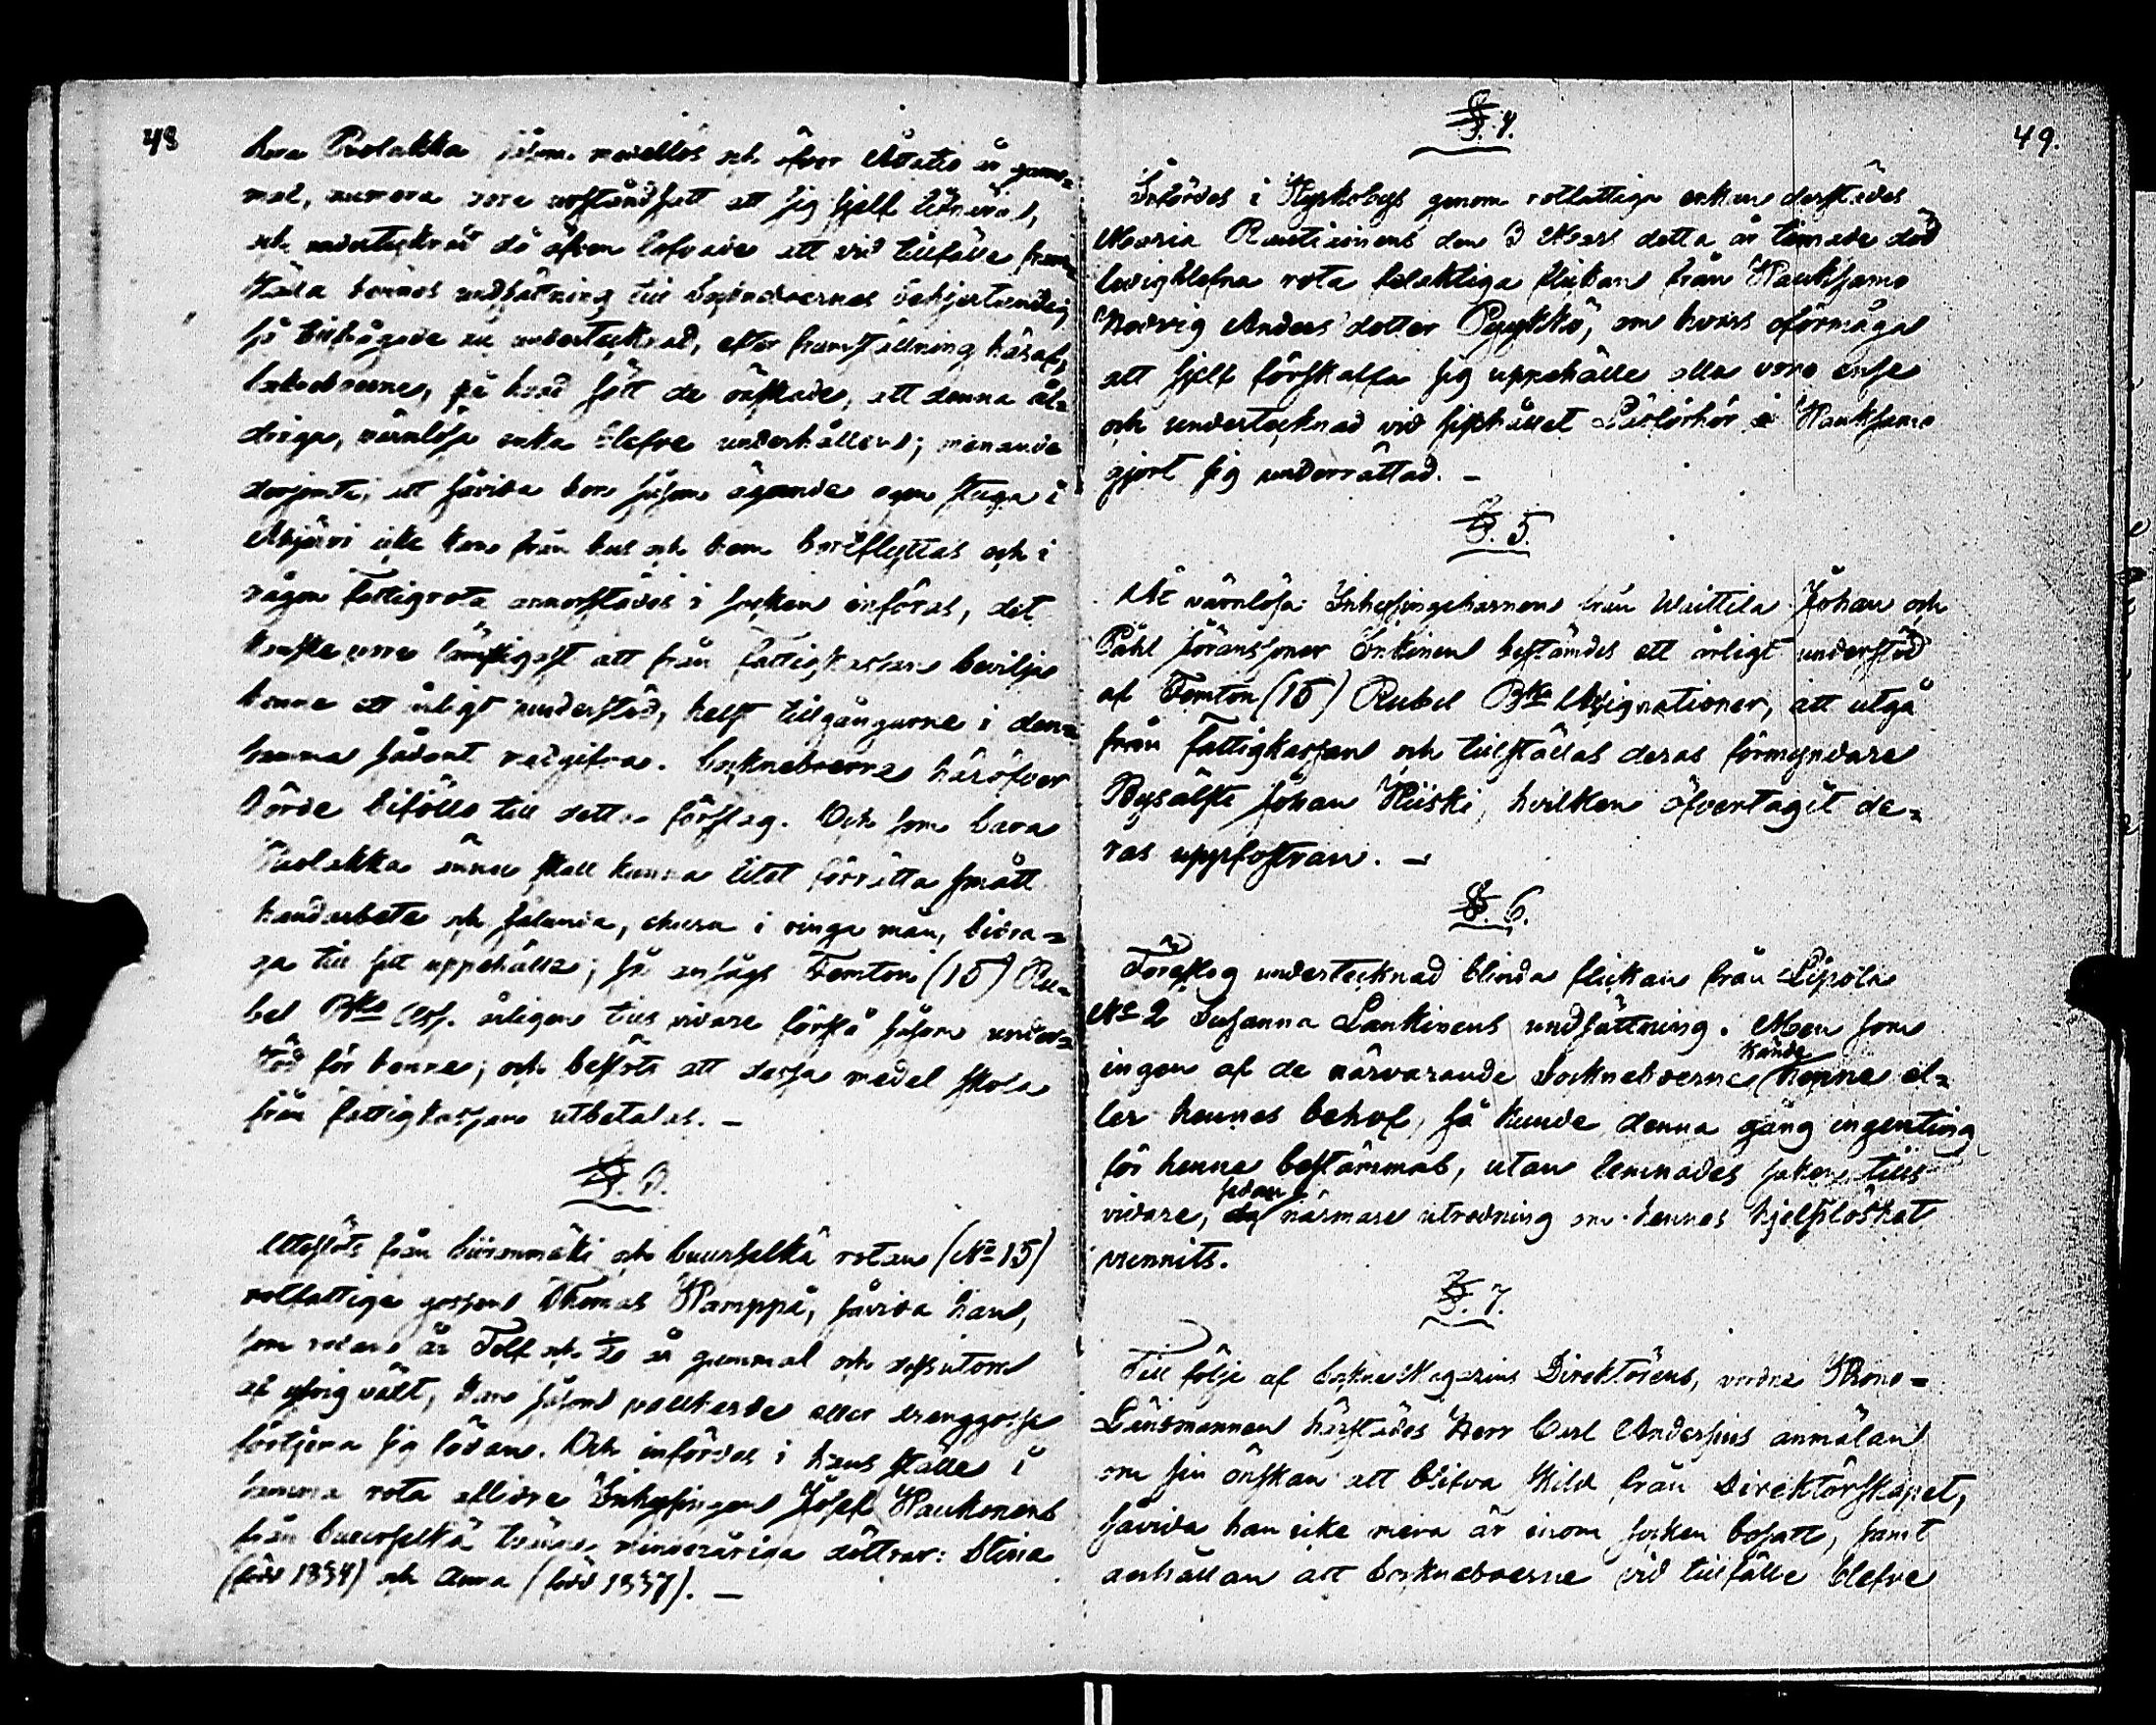 48
bara Puolakka såsom medellös och öfver Åttatio år gam=
mal, numera vore urståndsatt att sig sjelf lifnära,
och undertecknad då äfven lofvade att vid tillfälle fram=
ställa hennes undsättning till Sockneboernes behjertande;
så tillfrågade nu undertecknad, efter framställning häraf,
Sockneboerne, på hvad sätt de önskade, att denna ål=
driga, värnlösa enka blefve underhållen; menande
derjemte, att såvida hon såsom ägande egen stuga i
icke kan från hus och hem bortflyttas och i
någon fattigrota annorstädes i socken införas, det
kanske vore lämpligast att från fattigkassan bevilja
henne ett årligt understöd, helst tillgångarne i den=
samma sådant medgifva. Sockneboerne häröfver
hörde biföllo till detta förslag. Och som bara
Puolakka ännu skall kunna litet förrätta smått
handarbete och sålunda, ehuru i ringa mån, bidra=
ga till sitt uppehälle; så ansågs Femton (15) Ru=
bel Bko Ass. årligen tills vidare förslå såsom under=
stöd för henne; och beslöts att dessa medel skola
från fattigkassan utbetalas. —
§. 3.
Uteslöts från och Suurselkä rotan (No 15)
rotfattige gossen Thomas Hamppa, såvida han,
som redan är Tolf och ½ år gammal och dessutom
af yfvig växt, kan såsom vallherde eller drenggosse
förtjena sig födan. Och infördes i hans ställe i
samma rota aflidne Inhysingen Josef Haukonens
från Suurselkä tvänne minderåriga döttrar: Stina
(född 1834) och Anna (född 1837). —
49.
§. 4.
Infördes i Kyrkobys genom rotfattiga enkan derstädes
Maria Rautiainens den 3 Mars detta år timade död
ledigblefna rota felaktiga flickan från Hauksamo
Hedvig Anders dotter Pyykkö, om hvars oförmåga
att sjelf förskaffa sig uppehälle alla voro ense
och undertecknad vid sisthållet Läsförhör i Hauksamo
gjort sig underrättad. —
§. 5.
Åt värnlösa Inhysingebarnen från Waittila Johan och
Påhl Göranssöner Inkinen bestämdes ett årligt understöd
af Femton (15) Rubel Bko Assignationer, att utgå
från fattigkassan och tillställas deras förmyndare
Bysälste Johan Hiiski, hvilken öfvertagit de=
ras uppfostran. —
§. 6.
Föreslog undertecknad blinda flickan från Lipola
No 2 Susanna Lankinens undsättning. Men som
kände
ingen af de närvarande Sockneboerne henne el=
ler hennes behof, så kunde denna gång ingenting
för henne bestämmas, utan lemnades saken tills
sedan
vidare, då närmare utredning om hennes hjelplöshet
vunnits.
§. 7.
Till följe af SockneMagazins Direktörens, vordne Krono=
Länsmannen härstädes Herr Carl Andersins anmälan
om sin önskan att blifva skild från Direktörskapet,
såvida han icke mera är inom socken bosatt, samt
anhållan att Sockneboerne vid tillfälle blefve